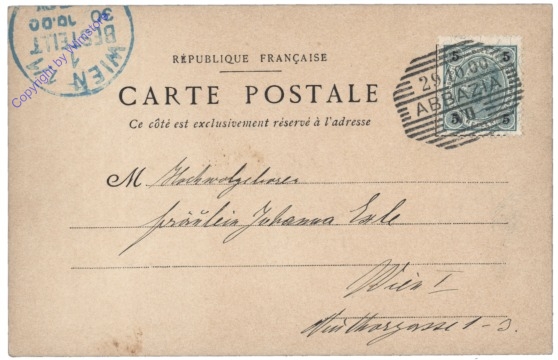 WIEN
BESTELLT
1
30
Copyright by Winistore
RÉPUBLIQUE FRANÇAISE
CARTE POSTALE
Ce côté est exclusivement réservé à l'adresse
5 5
29.10.00
ABBAZIA
5 5
M Hochwolgeboren
Fräulein Johanna
Wien I
1-3.